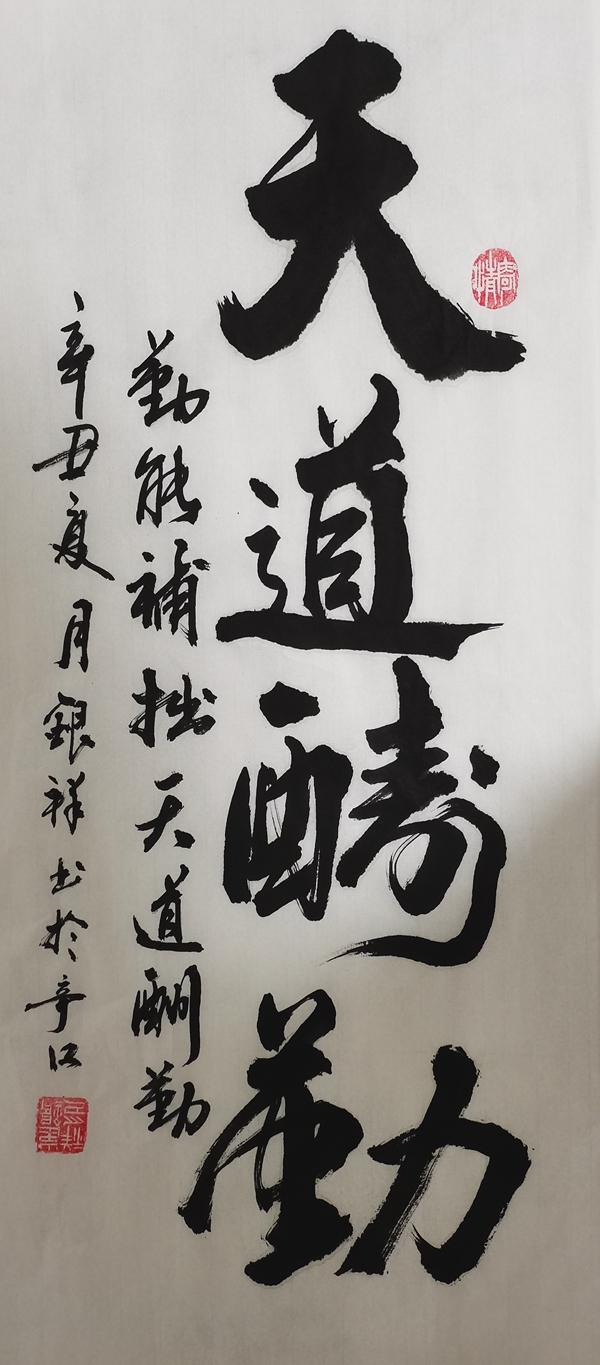 天道酬勤
勤能補拙天道酬勤
辛丑夏月銀祥书於辛江